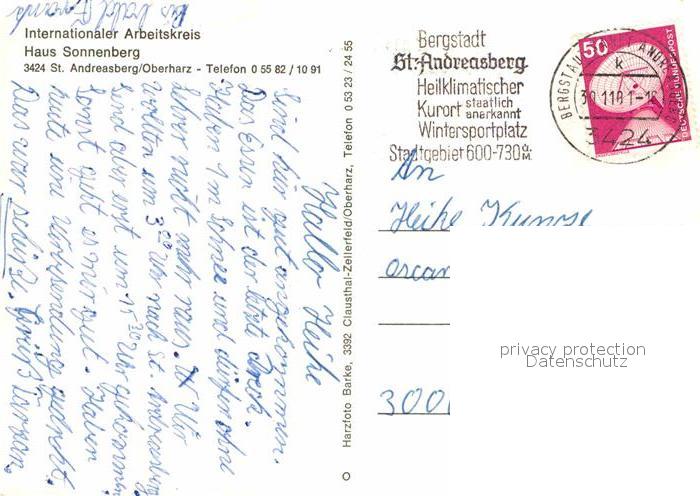 Internationaler Arbeitskreis
Haus Sonnenberg
3424 St. Andreasberg/Oberharz - Telefon 0 55 82 / 10 91
Hallo Heike
Sind hier gut angekommen.
Das Essen ist der letzte Dreck.
Haben 1m Schnee und dürfen ohne
nicht mehr raus. Wir
wollten um 3:00 Uhr nach St. Andreasberg
sind aber erst um 15:30 Uhr gekommen.
Sonst geht es mir gut. Haben
heute eine gedreht.
Das war schön!
Bis bald
Harzfoto Barke, 3392 Clausthal-Zellerfeld/Oberharz, Telefon 0 53 23 / 24 55
Bergstadt
St. Andreasberg
Heilklimatischer
Kurort staatlich anerkannt
Wintersportplatz
Stadtgebiet 600-730 ü.M.
50
DEUTSCHE BUNDESPOST
k
3424
An
Heike
300
privacy protection
Datenschutz